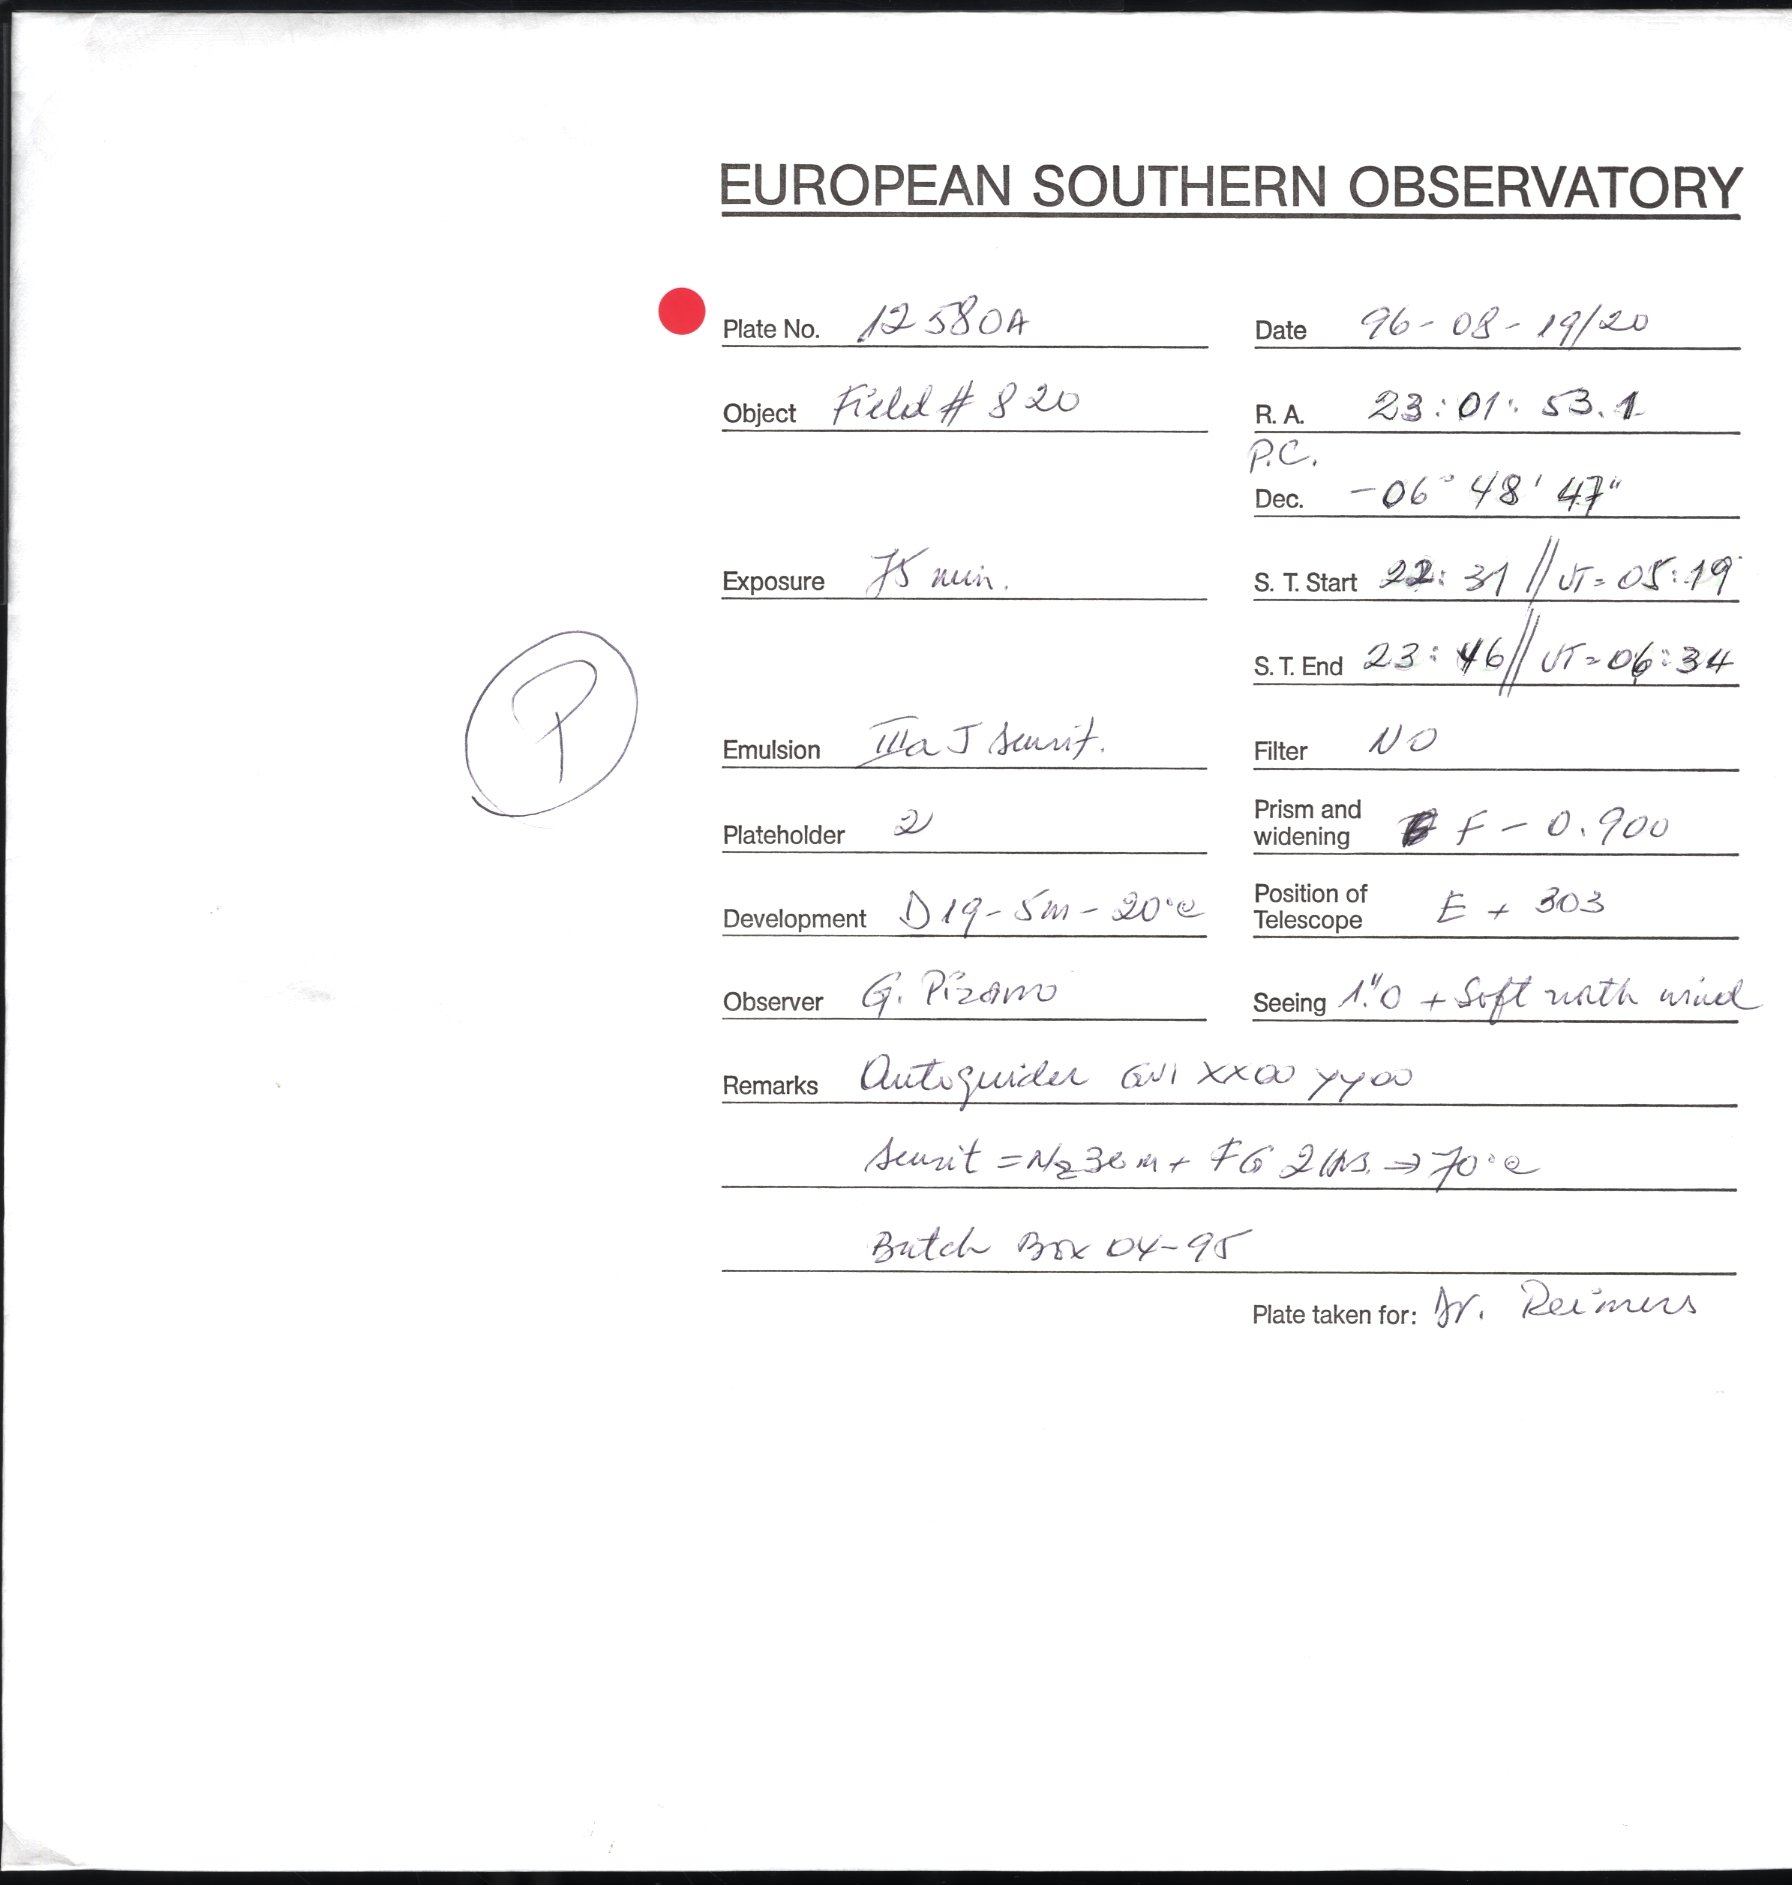 EUROPEAN SOUTHERN OBSERVATORY
Plate No. 12580A Date 96-08-19/20
Object Field # 820 R. A. 23:01:53.1
P.C.
Dec. -06° 48' 47"
Exposure 75 min. S. T. Start 22:31 // UT = 05:19
S. T. End 23:46 // UT = 06:34
P
Emulsion IIIa J sensit. Filter NO
Plateholder 2 Prism and widening F - 0.900
Development D19-5m-20°c Position of Telescope E + 303
Observer G. Pizarro Seeing 1."0 + Soft north wind
Remarks Autoguider XX00 YY00
sensit = N2 30m + FG 2hrs. ⇒ 70°c
Batch Box 04-95
Plate taken for: Dr. Reimers